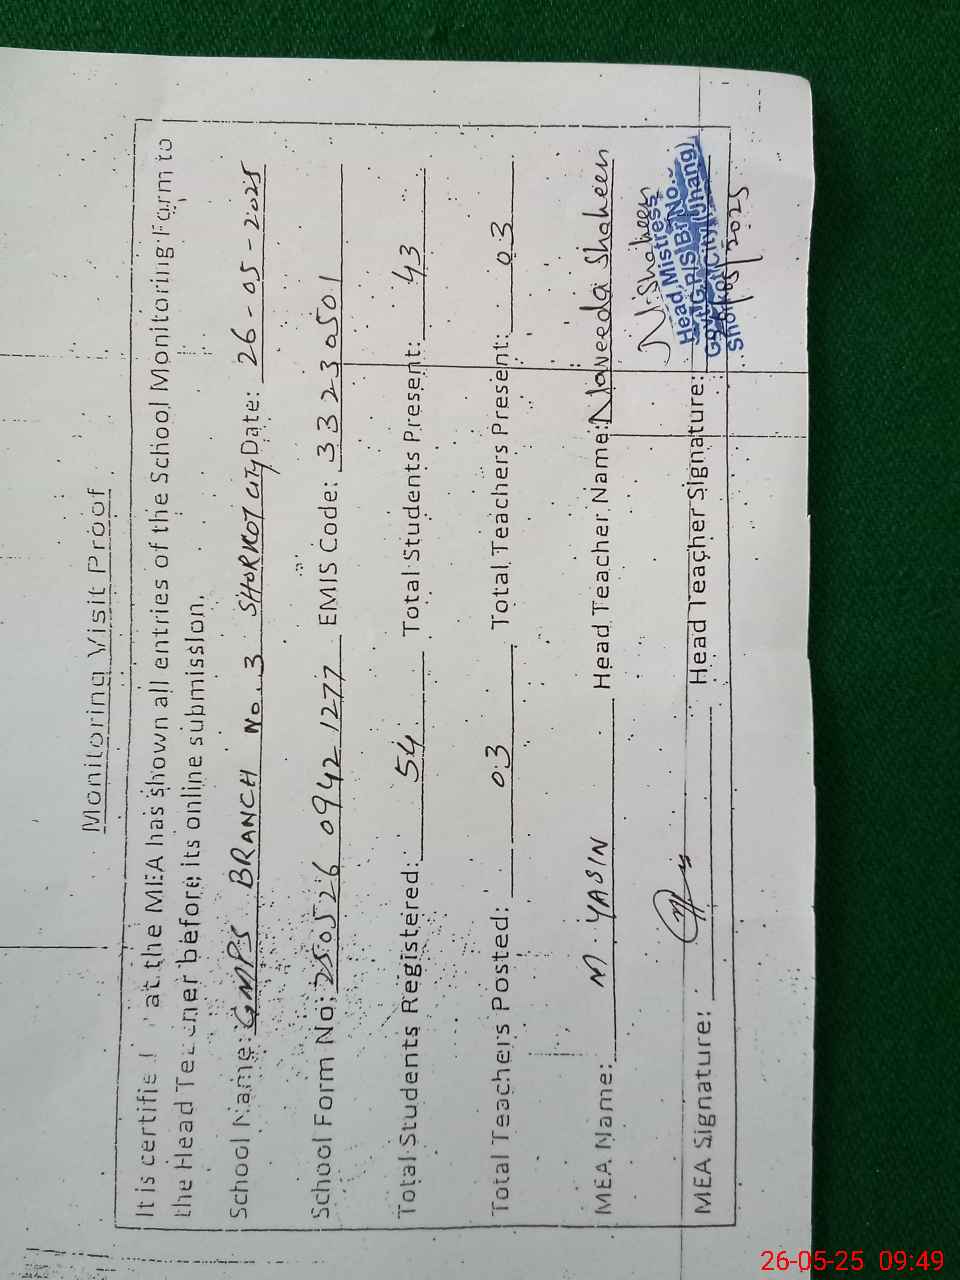 Monitoring Visit Proof
It is certified that the MEA has shown all entries of the School Monitoring Form to
the Head Teacher before its online submission.
School Name: GMPS BRANCH No. 3 SHORKOT CITY Date: 26-05-2025
School Form No: 250526 0942 1277 EMIS Code: 33230501
Total Students Registered: 54 Total Students Present: 43
Total Teachers Posted: 03 Total Teachers Present: 03
MEA Name: M. YASIN Head Teacher Name: Naveeda Shaheen
MEA Signature: Head Teacher Signature:
N. Shaheen
Head Mistress
Govt. G.P/S Br No.
Shorkot City (Jhang)
26/05/2025
26-05-25 09:49